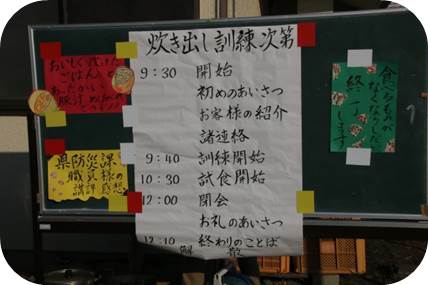 炊き出し訓練次第
9:30 開始
初めのあいさつ
お客様の紹介
諸連絡
9:40 訓練開始
10:30 試食開始
12:00 閉会
お礼のあいさつ
12:10 終わりのことば
解散
おいしく炊けた
ごはんと
あったかい
豚汁
県防災課
職員様の
講評・感想
食べるものが
なくなりしだい
終了
します